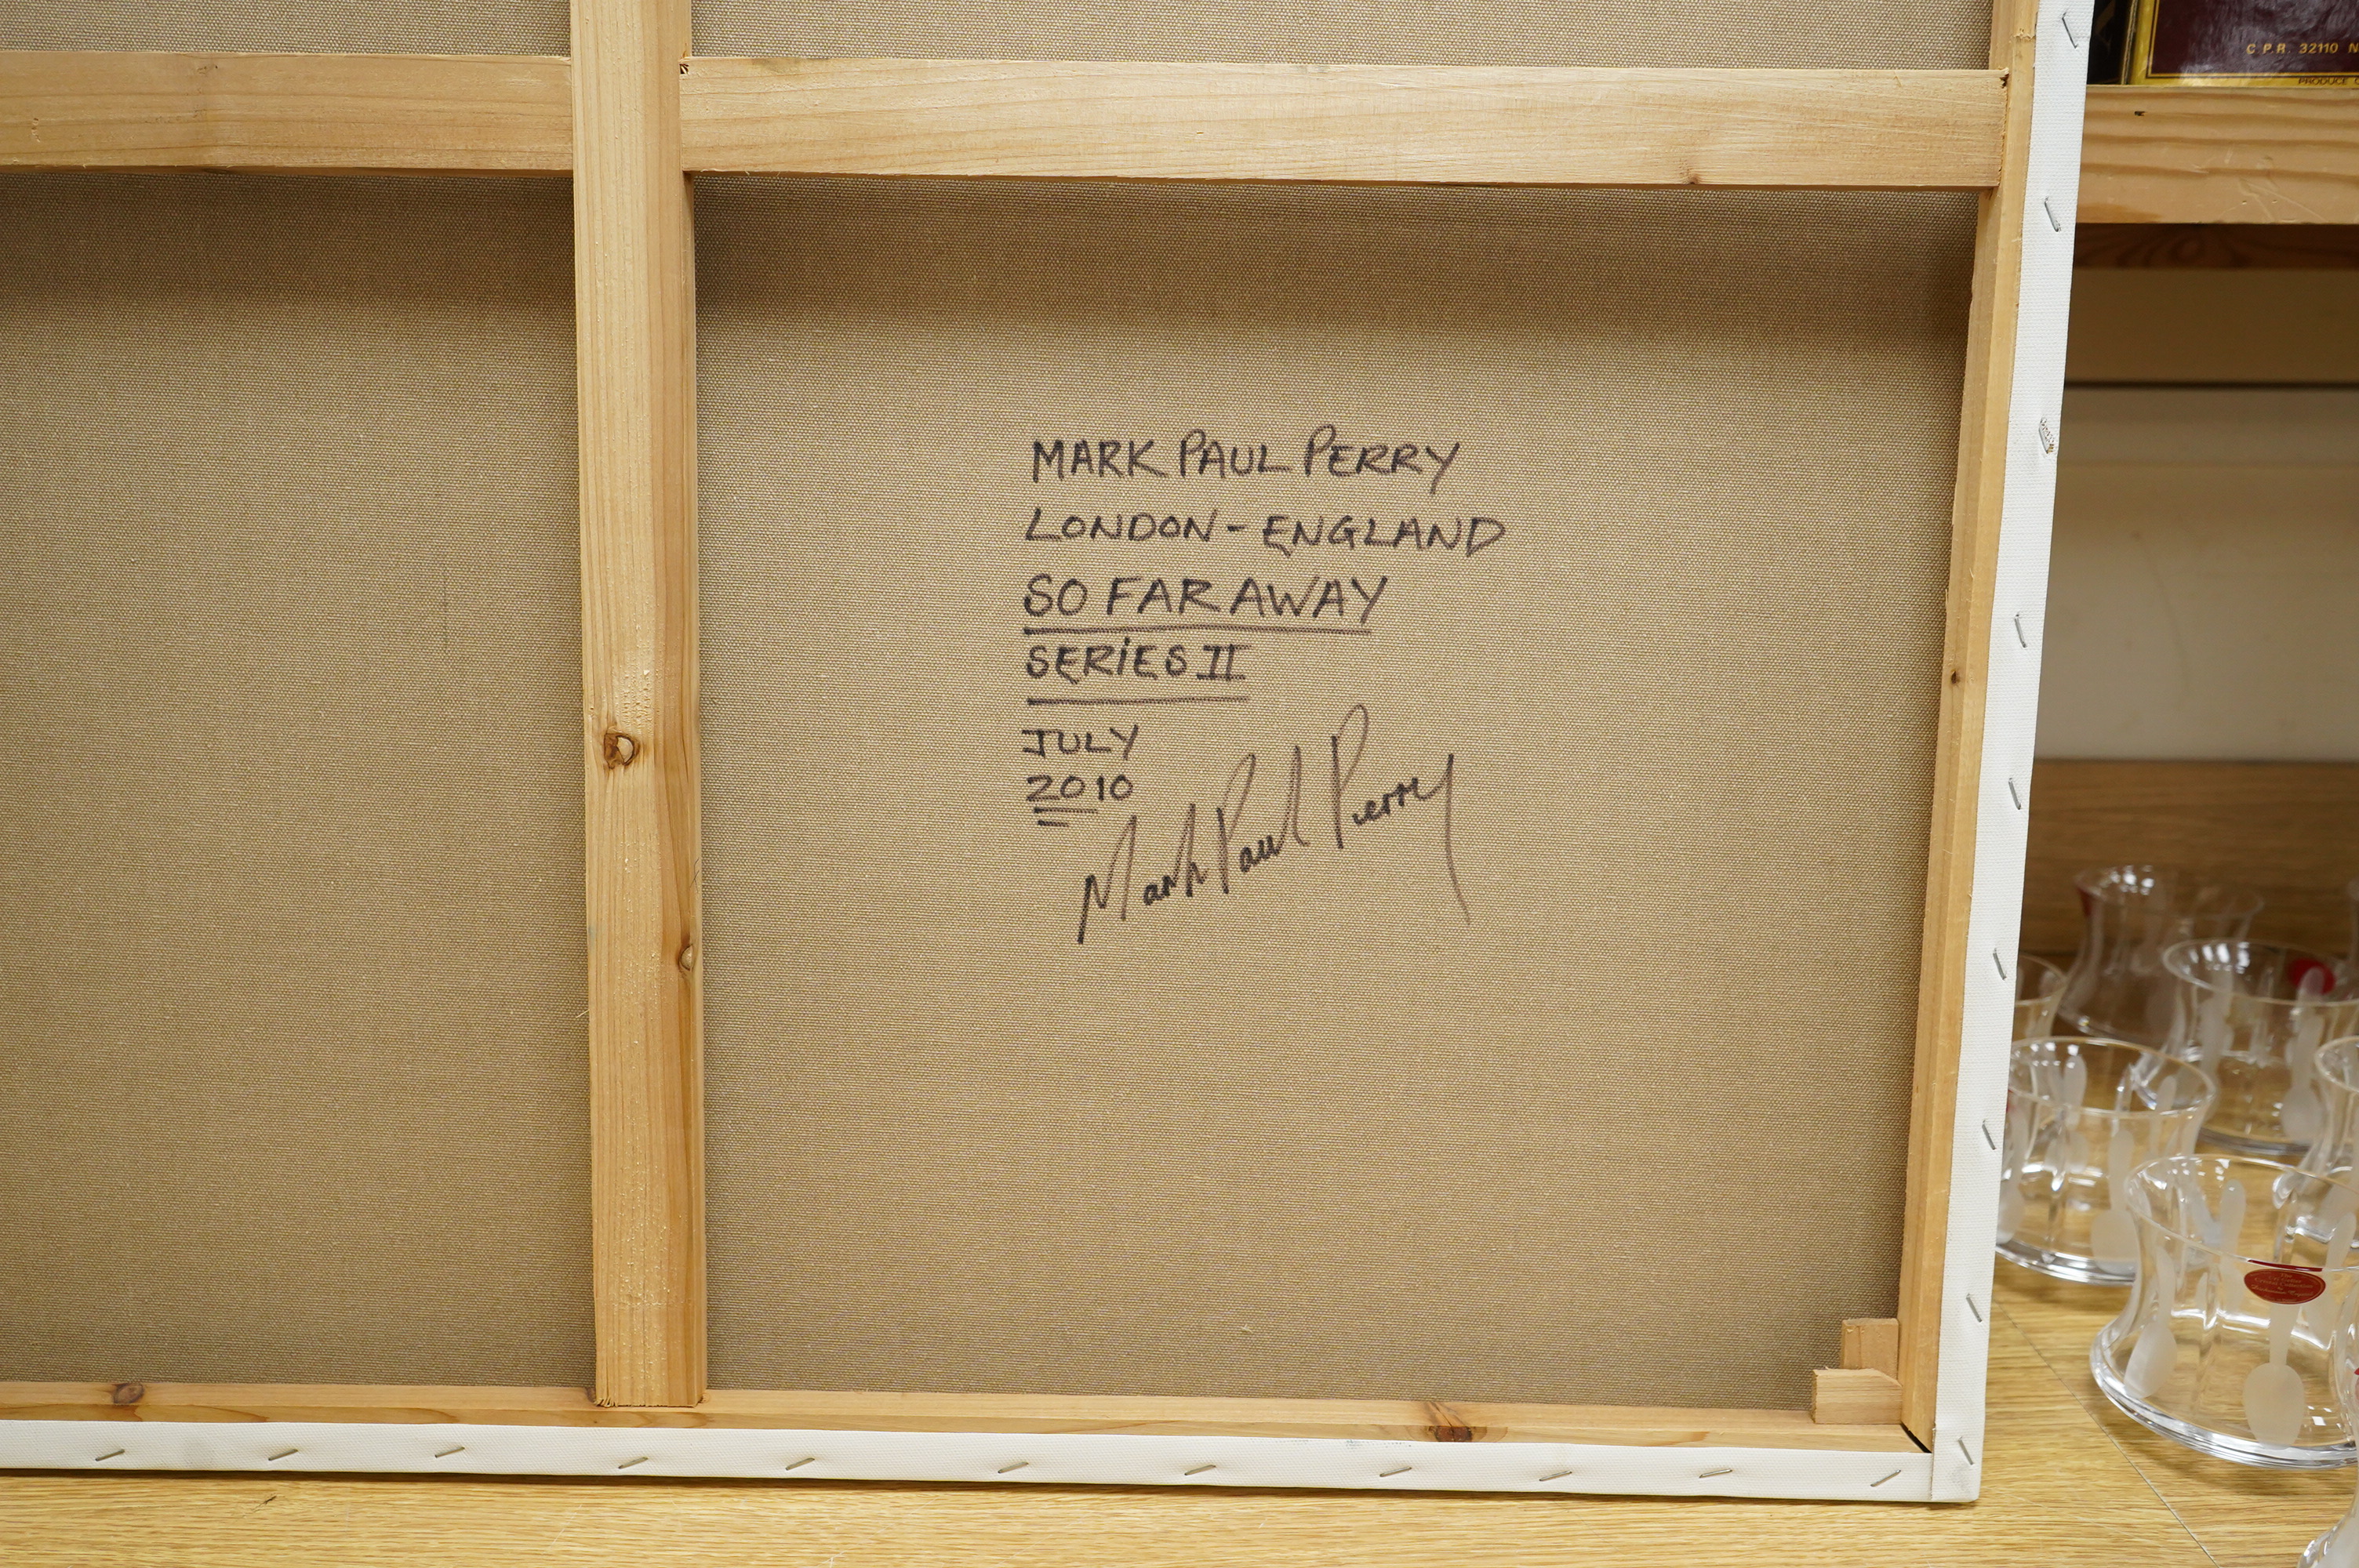 MARK PAUL PERRY
LONDON - ENGLAND
SO FAR AWAY
SERIES II
JULY
2010
Mark Paul Perry
C.P.R. 32110 N
PRODUCE